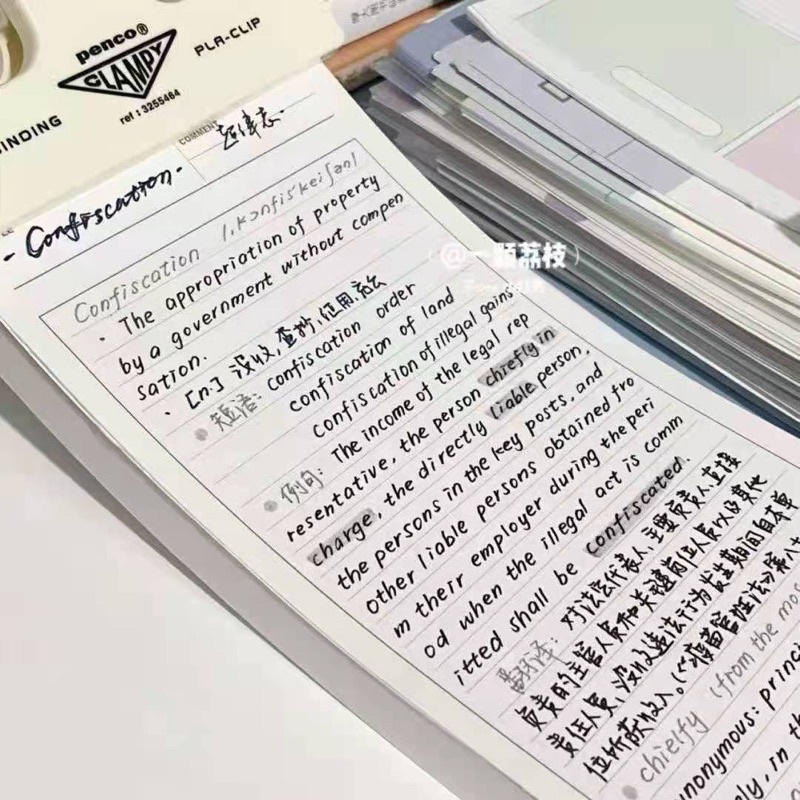 penco®
CLAMPY
PLA-CLIP
ref : 3255464
INDING
COMMENT
- Confiscation.
Confiscation /,kɔnfis'keiʃən/
· The appropriation of property
by a government without compen
sation.
· [n.] 没收,查抄,征用,充公
短语: confiscation order
confiscation of land
Confiscation of illegal gains
例句: The income of the legal rep
resentative, the person chiefly in
charge, the directly liable person,
the persons in the key posts, and
other liable persons obtained fro
m their employer during the peri
od when the illegal act is comm
itted shall be confiscated.
翻译: 对法定代表人,主要负责人,直接
负责的主管人员和关键岗位人员以及其他
责任人员,没收违法行为发生期间自本单
位所获收入。(《疫苗管理法》第八十
chielfy (from the mos
nonymous: princi
ly, in th
@一颗荔枝